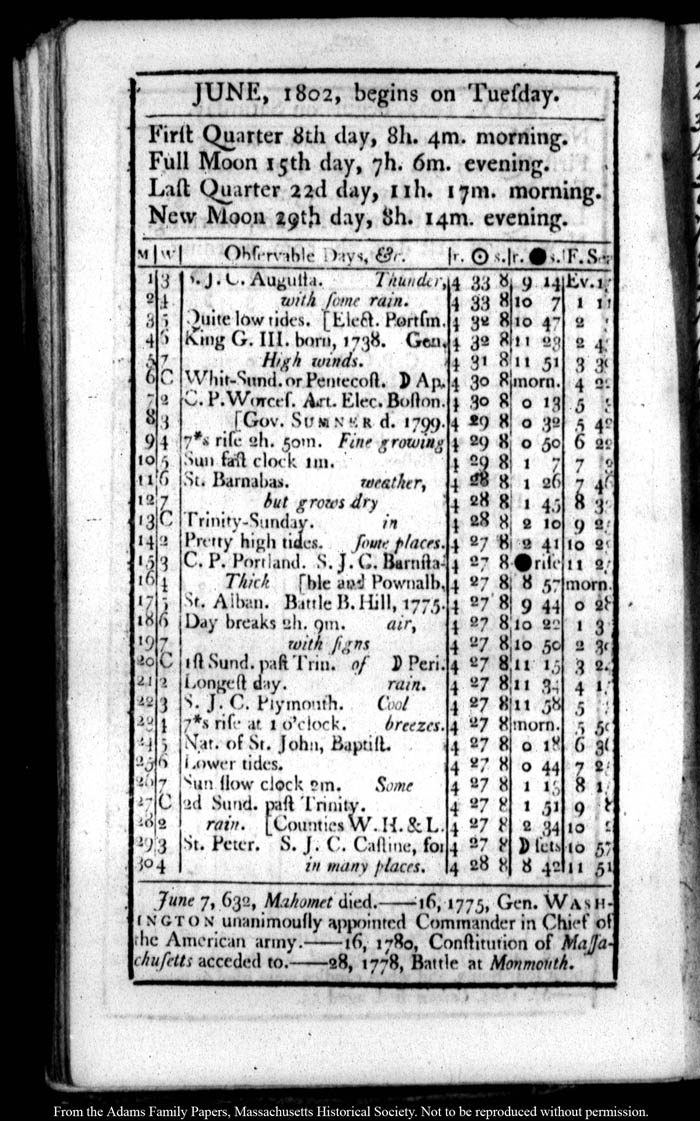 JUNE, 1802, begins on Tueſday.
Firſt Quarter 8th day, 8h. 4m. morning.
Full Moon 15th day, 7h. 6m. evening.
Laſt Quarter 22d day, 11h. 17m. morning.
New Moon 29th day, 8h. 14m. evening.
M|W| Obſervable Days, &c. |r. ☉ s.|r. ● s.|F. Sea
1 3 S. J. C. Auguſta. Thunder, 4 33 8 9 14 Ev.
2 4 with ſome rain. 4 33 8 10 7 1 11
3 5 Quite low tides. [Elect. Portſm. 4 32 8 10 47 2
4 6 King G. III. born, 1738. Gen. 4 32 8 11 23 2
5 7 High winds. 4 31 8 11 51 3
6 C Whit-Sund. or Pentecoſt. ☽ Ap. 4 30 8 morn. 4
7 2 C. P. Worceſ. Art. Elec. Boſton. 4 30 8 0 13 5
8 3 [Gov. SUMNER d. 1799. 4 29 8 0 32 5
9 4 7*s riſe 2h. 50m. Fine growing 4 29 8 0 50 6 22
10 5 Sun faſt clock 1m. 4 29 8 1 7 7
11 6 St. Barnabas. weather, 4 28 8 1 26 7
12 7 but grows dry 4 28 8 1 45 8
13 C Trinity-Sunday. in 4 28 8 2 10 9
14 2 Pretty high tides. ſome places. 4 27 8 2 41 10
15 3 C. P. Portland. S. J. C. Barnſta- 4 27 8 ● riſe 11
16 4 Thick [ble and Pownalb. 4 27 8 8 57 morn.
17 5 St. Alban. Battle B. Hill, 1775. 4 27 8 9 44 0 28
18 6 Day breaks 2h. 9m. air, 4 27 8 10 22 1
19 7 with ſigns 4 27 8 10 50 2
20 C 1ſt Sund. paſt Trin. of ☽ Peri. 4 27 8 11 15 3
21 2 Longeſt day. rain. 4 27 8 11 34 4
22 3 S. J. C. Plymouth. Cool 4 27 8 11 58 5
4 7*s riſe at 1 o'clock. breezes. 4 27 8 morn. 5
24 5 Nat. of St. John, Baptiſt. 4 27 8 0 18 6
25 6 Lower tides. 4 27 8 0 44 7
26 7 Sun ſlow clock 2m. Some 4 27 8 1 15 8
27 C 2d Sund. paſt Trinity. 4 27 8 1 51 9
28 2 rain. [Counties W. H. & L. 4 27 8 2 34 10
29 3 St. Peter. S. J. C. Caſtine, for 4 27 8 ☽ ſets 10 57
30 4 in many places. 4 28 8 8 42 11 51
June 7, 632, Mahomet died.——16, 1775, Gen. WASH-
INGTON unanimouſly appointed Commander in Chief of
the American army.——16, 1780, Conſtitution of Maſſa-
chuſetts acceded to.——28, 1778, Battle at Monmouth.
From the Adams Family Papers, Massachusetts Historical Society. Not to be reproduced without permission.